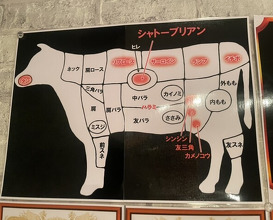 シャトーブリアン
ヒレ
リブロース
サーロイン
ランプ
タン
ネック
肩ロース
三角バラ
肩
肩バラ
中バラ
ハラミ
カイノミ
ササミ
友バラ
外もも
内もも
ミスジ
前スネ
シンシン
友三角
カメノコウ
友スネ